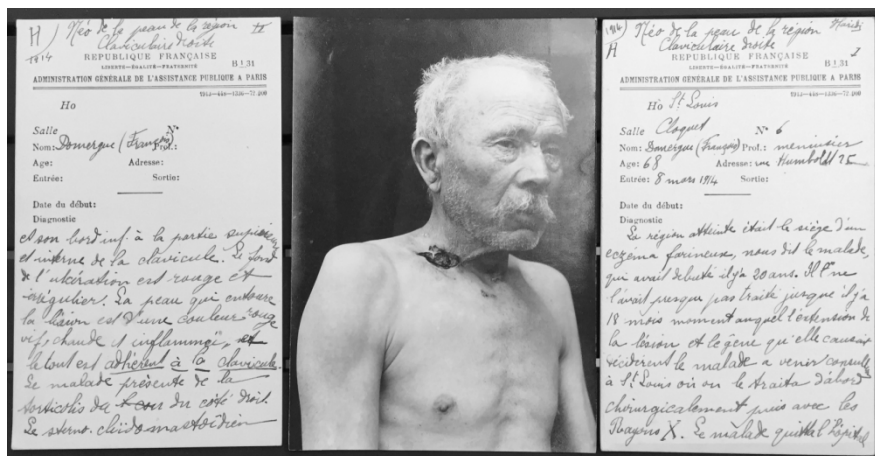 H) Néo de la peau de la région II
Claviculaire droite
1914
REPUBLIQUE FRANÇAISE
LIBERTÉ—ÉGALITÉ—FRATERNITÉ
B 1.31
ADMINISTRATION GÉNÉRALE DE L'ASSISTANCE PUBLIQUE A PARIS
Ho
Salle N°
Nom: Domergue (François) Prof.:
Age: Adresse:
Entrée: Sortie:
Date du début:
Diagnostic
et son bord inf. à la partie supérieure
et interne de la clavicule. Le fond
de l'ulcération est rouge et
irrégulier. La peau qui entoure
la lésion est d'une couleur rouge
vif, chaude et inflammée, et
le tout est adhérent à la clavicule.
Le malade présente de la
torticolis du cou du côté droit.
Le sterno-cléidomastoïdien
1914) Néo de la peau de la région
H Claviculaire droite I
REPUBLIQUE FRANÇAISE
LIBERTÉ—ÉGALITÉ—FRATERNITÉ
B 1.31
ADMINISTRATION GÉNÉRALE DE L'ASSISTANCE PUBLIQUE A PARIS
Ho St Louis
Salle Cloquet N° 6
Nom: Domergue (François) Prof.: menuisier
Age: 68 Adresse: rue Humboldt 25
Entrée: 8 mars 1914 Sortie:
Date du début:
Diagnostic
La région atteinte était le siège d'un
eczéma farineux, nous dit le malade,
qui avait débuté il y a 20 ans. Il ne
l'avait presque pas traité jusque il y a
18 mois moment auquel l'extension de
la lésion et le gêne qu'elle causait
décidèrent le malade a venir consulter
à St Louis où on le traita d'abord
chirurgicalement puis avec les
Rayons X. Le malade quitta l'hôpital